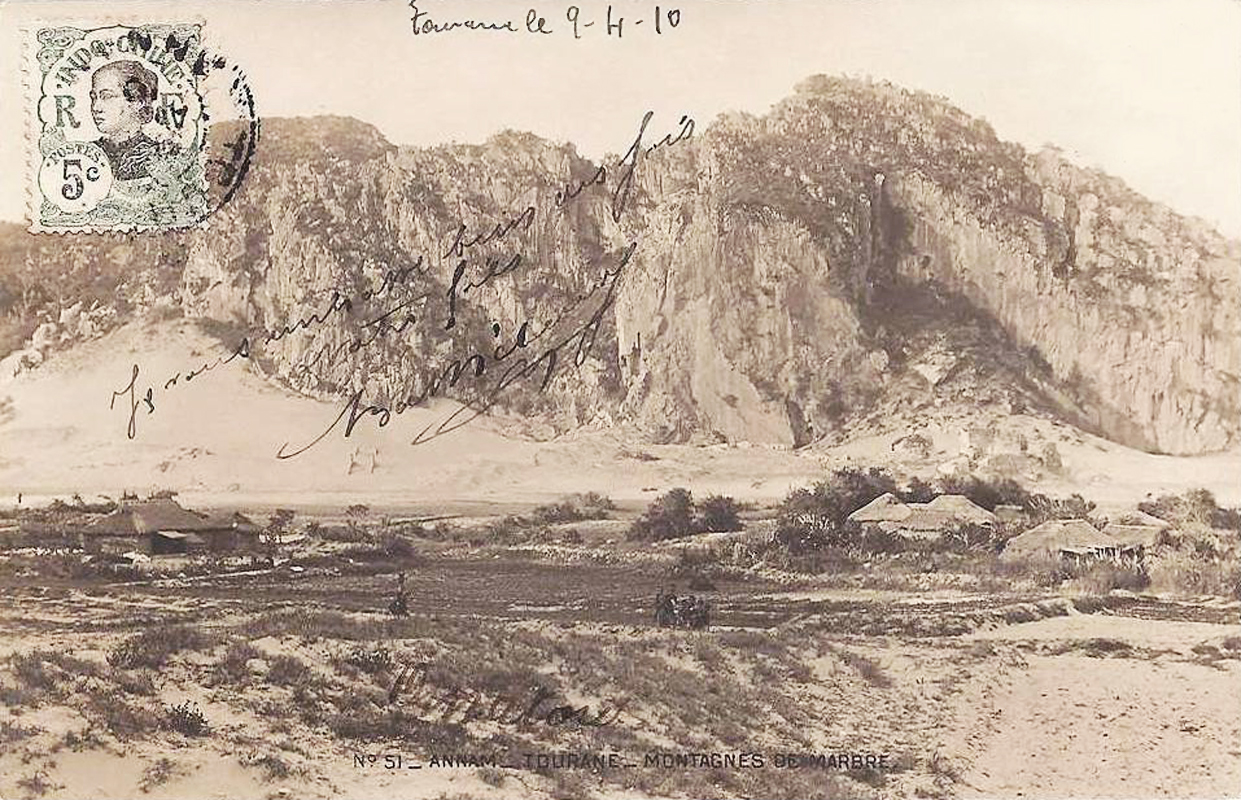 Tourane le 9-4-10
INDO-CHINE
R F
POSTES
5c
Je vous embrasse bien des fois
votre fils
Nº 51 _ ANNAM _ TOURANE _ MONTAGNES DE MARBRE